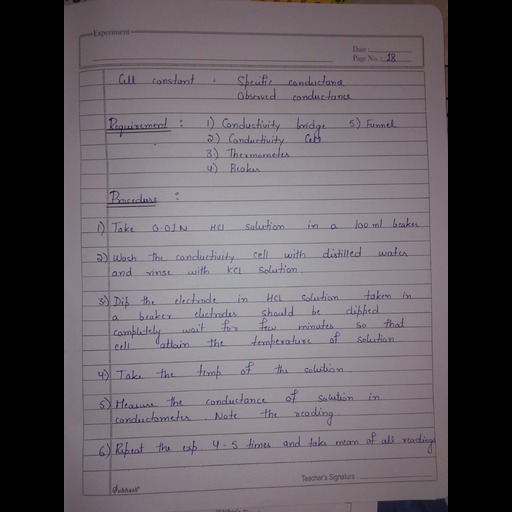 Experiment
Date :
Page No. : 18
Cell constant = Specific conductance
Observed conductance
Requirement : 1) Conductivity bridge 5) Funnel
2) Conductivity Cell
3) Thermometer
4) Beaker
Procedure :
1) Take 0.01N HCl solution in a 100 ml beaker
2) Wash the conductivity cell with distilled water
and rinse with KCl solution.
3) Dip the electrode in HCl solution taken in
a beaker electrodes should be dipped
completely wait for few minutes so that
cell attain the temperature of solution
4) Take the temp of the solution
5) Measure the conductance of solution in
conductometer. Note the reading.
6) Repeat the exp 4-5 times and take mean of all reading
Teacher's Signature